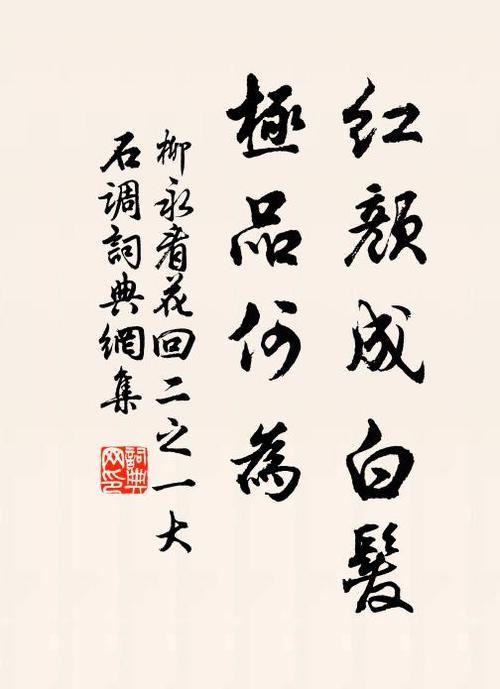 红颜成白髮
極品何為
柳永看花回二之一大
石调詞典網集
詞典
网印